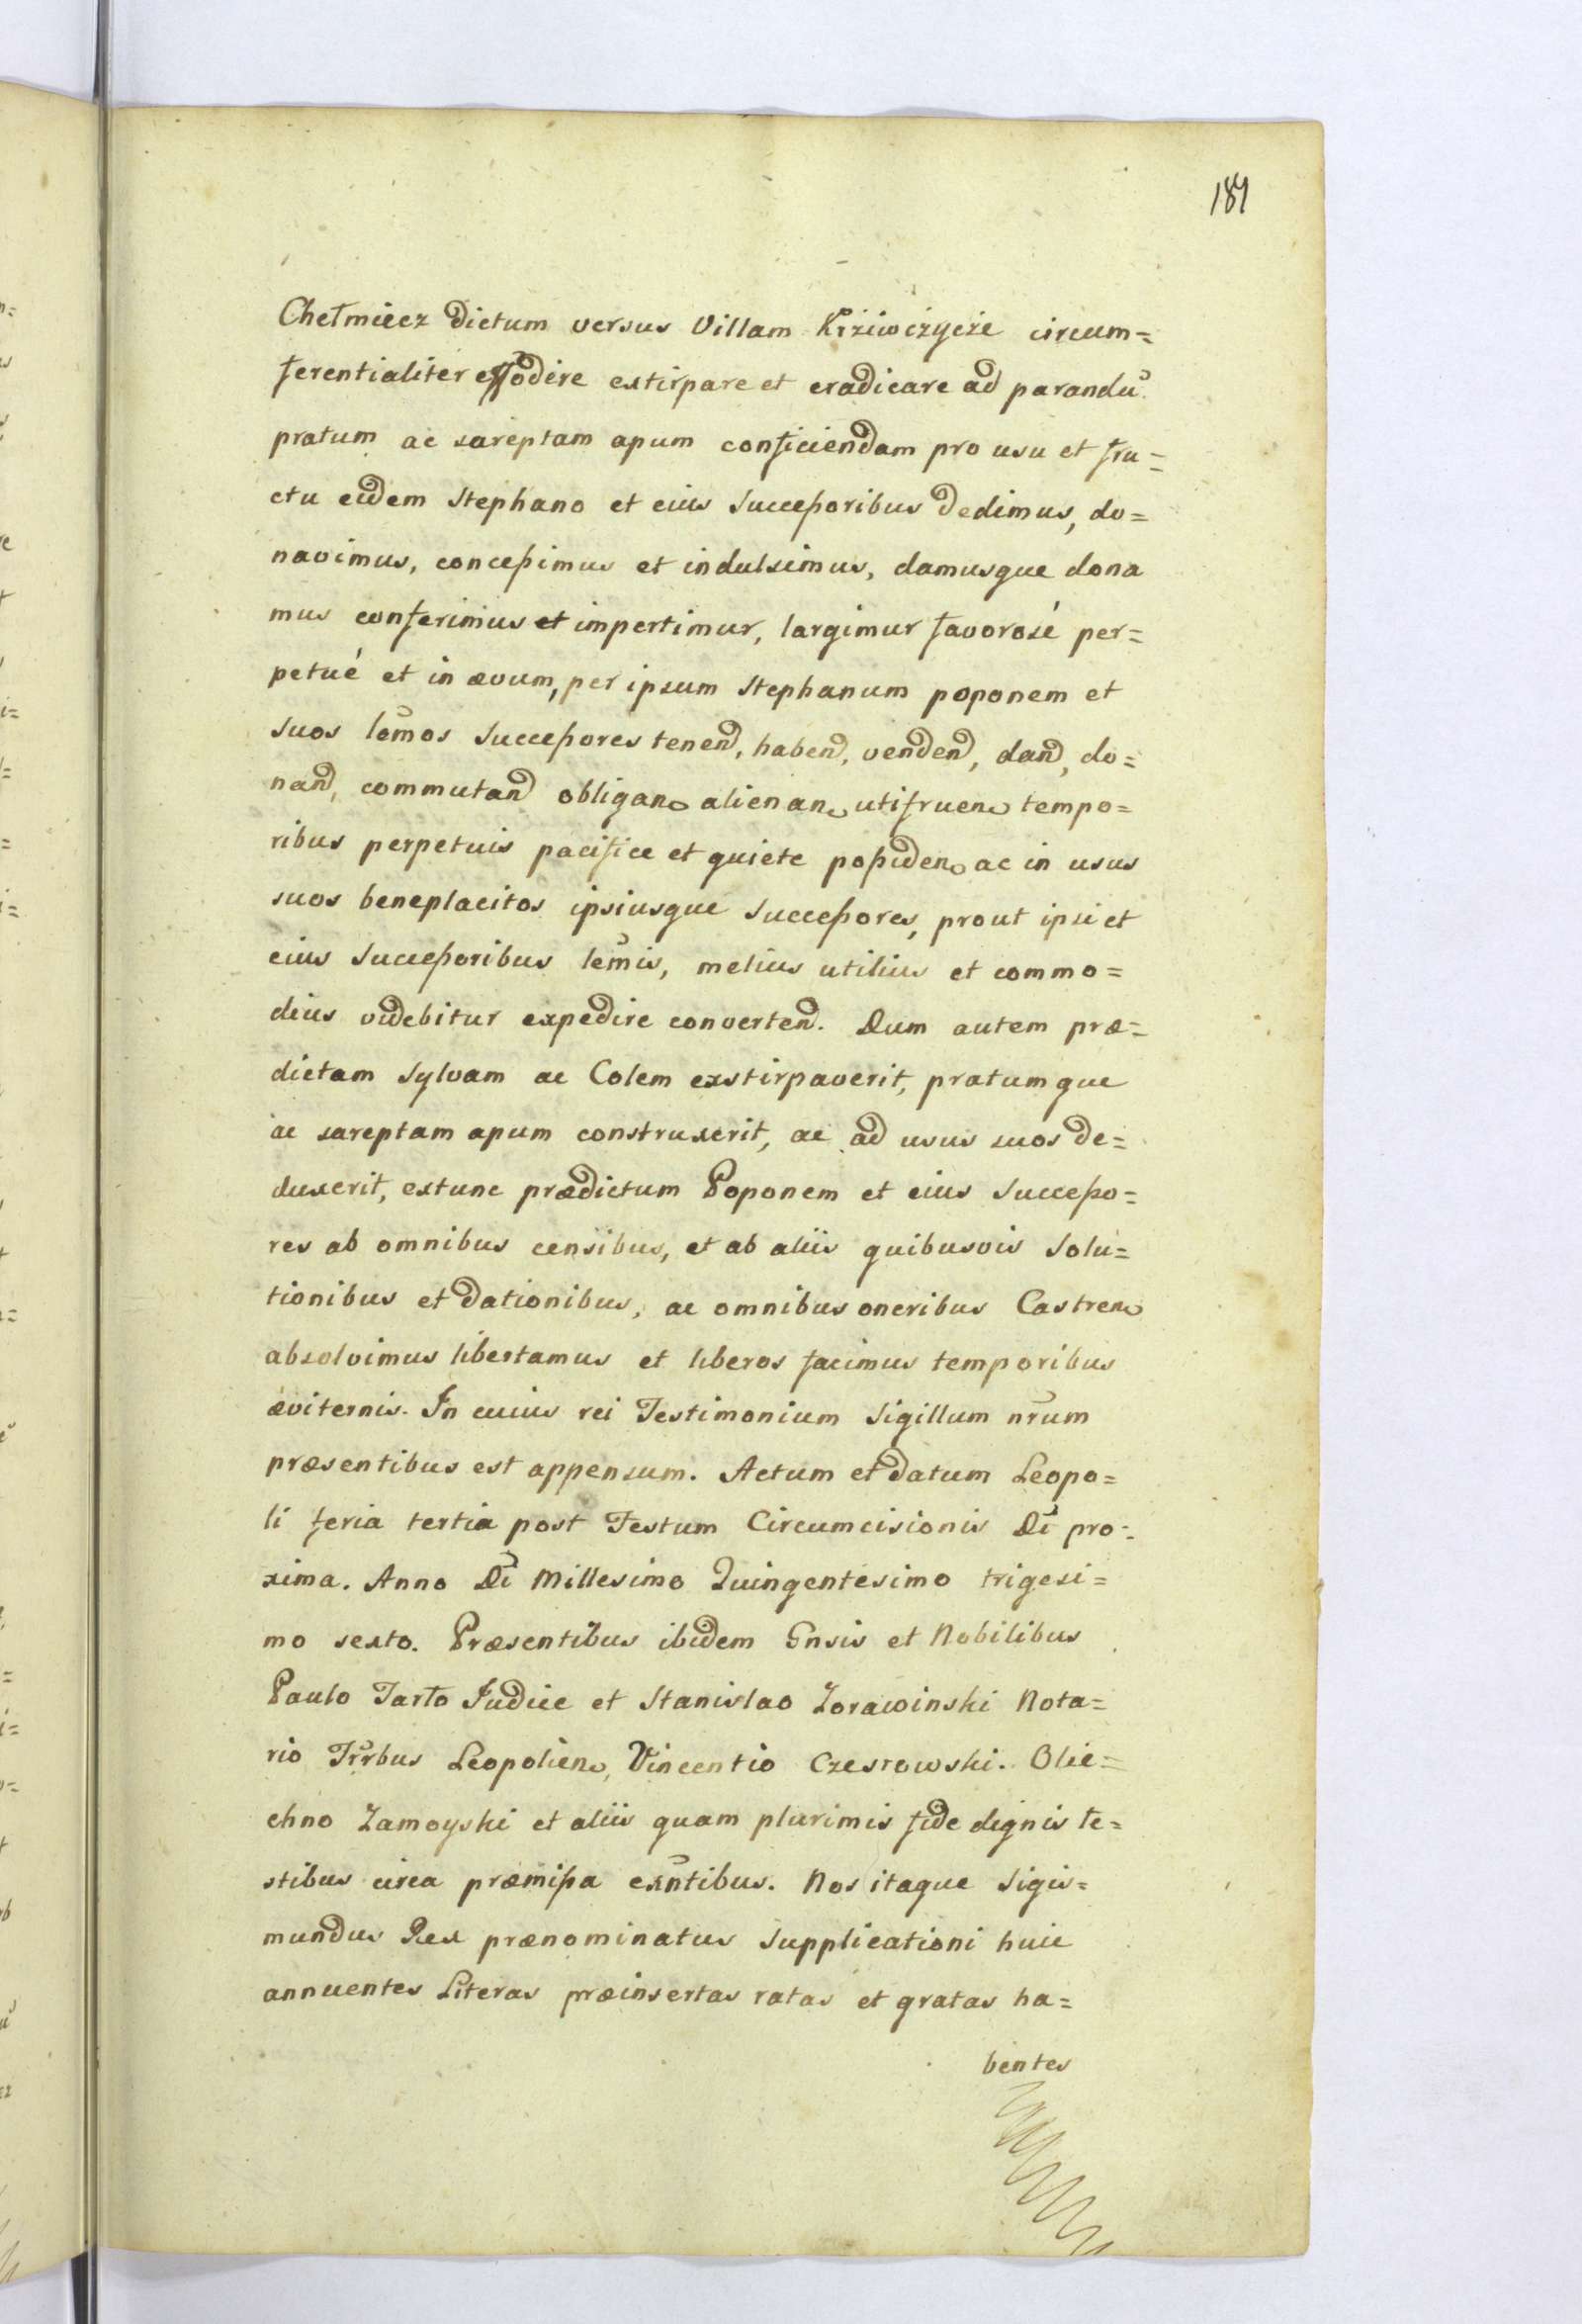 181
Chełmiecz dictum versus Villam Krziwczycze circum=
ferentialiter effodere extirpare et eradicare ad parandū
pratum ac sareptam apum conficiendam pro usu et fru=
ctu eidem Stephano et eius Successoribus dedimus, do=
navimus, concessimus et indulsimus, damusque dona
mus conferimus et impertimur, largimur favorosé per=
petué et in ævum, per ipsum Stephanum poponem et
suos lēmos Successores tenend, habend, vendend, dand, do=
nand, commutand obligand alienand utifruend tempo=
ribus perpetuis pacifice et quiete possidend ac in usus
suos beneplacitos ipsiusque Successores, prout ipsi et
eius Successoribus lēmis, melius utilius et commo=
dius videbitur expedire convertend. Dum autem præ=
dictam Sylvam ac Colem exstirpaverit, pratumque
ac sareptam apum construxerit, ac ad usus suos de=
duxerit, extunc prædictum Poponem et eius Successo=
res ab omnibus censibus, et ab aliis quibusvis Solu=
tionibus et dationibus, ac omnibus oneribus Castren
absolvimus libertamus et liberos facimus temporibus
æviternis. In cuius rei Testimonium Sigillum nr̄um
præsentibus est appensum. Actum et datum Leopo=
li feria tertia post Festum Circumcisionis Dī pro=
xima. Anno Dī Millesimo Quingentesimo trigesi=
mo sexto. Præsentibus ibidem Gnsis et Nobilibus
Paulo Tarło Judice et Stanislao Zorawinski Nota=
rio Trrbus Leopolien, Vincentio Czesrowski. Olie=
chno Zamoyski et aliis quam plurimis fide dignis te=
stibus circa præmissa exn̄tibus. Nos itaque Sigis=
mundus Rex prænominatus Supplicationi huic
annuentes Literas præinsertas ratas et gratas ha=
bentes